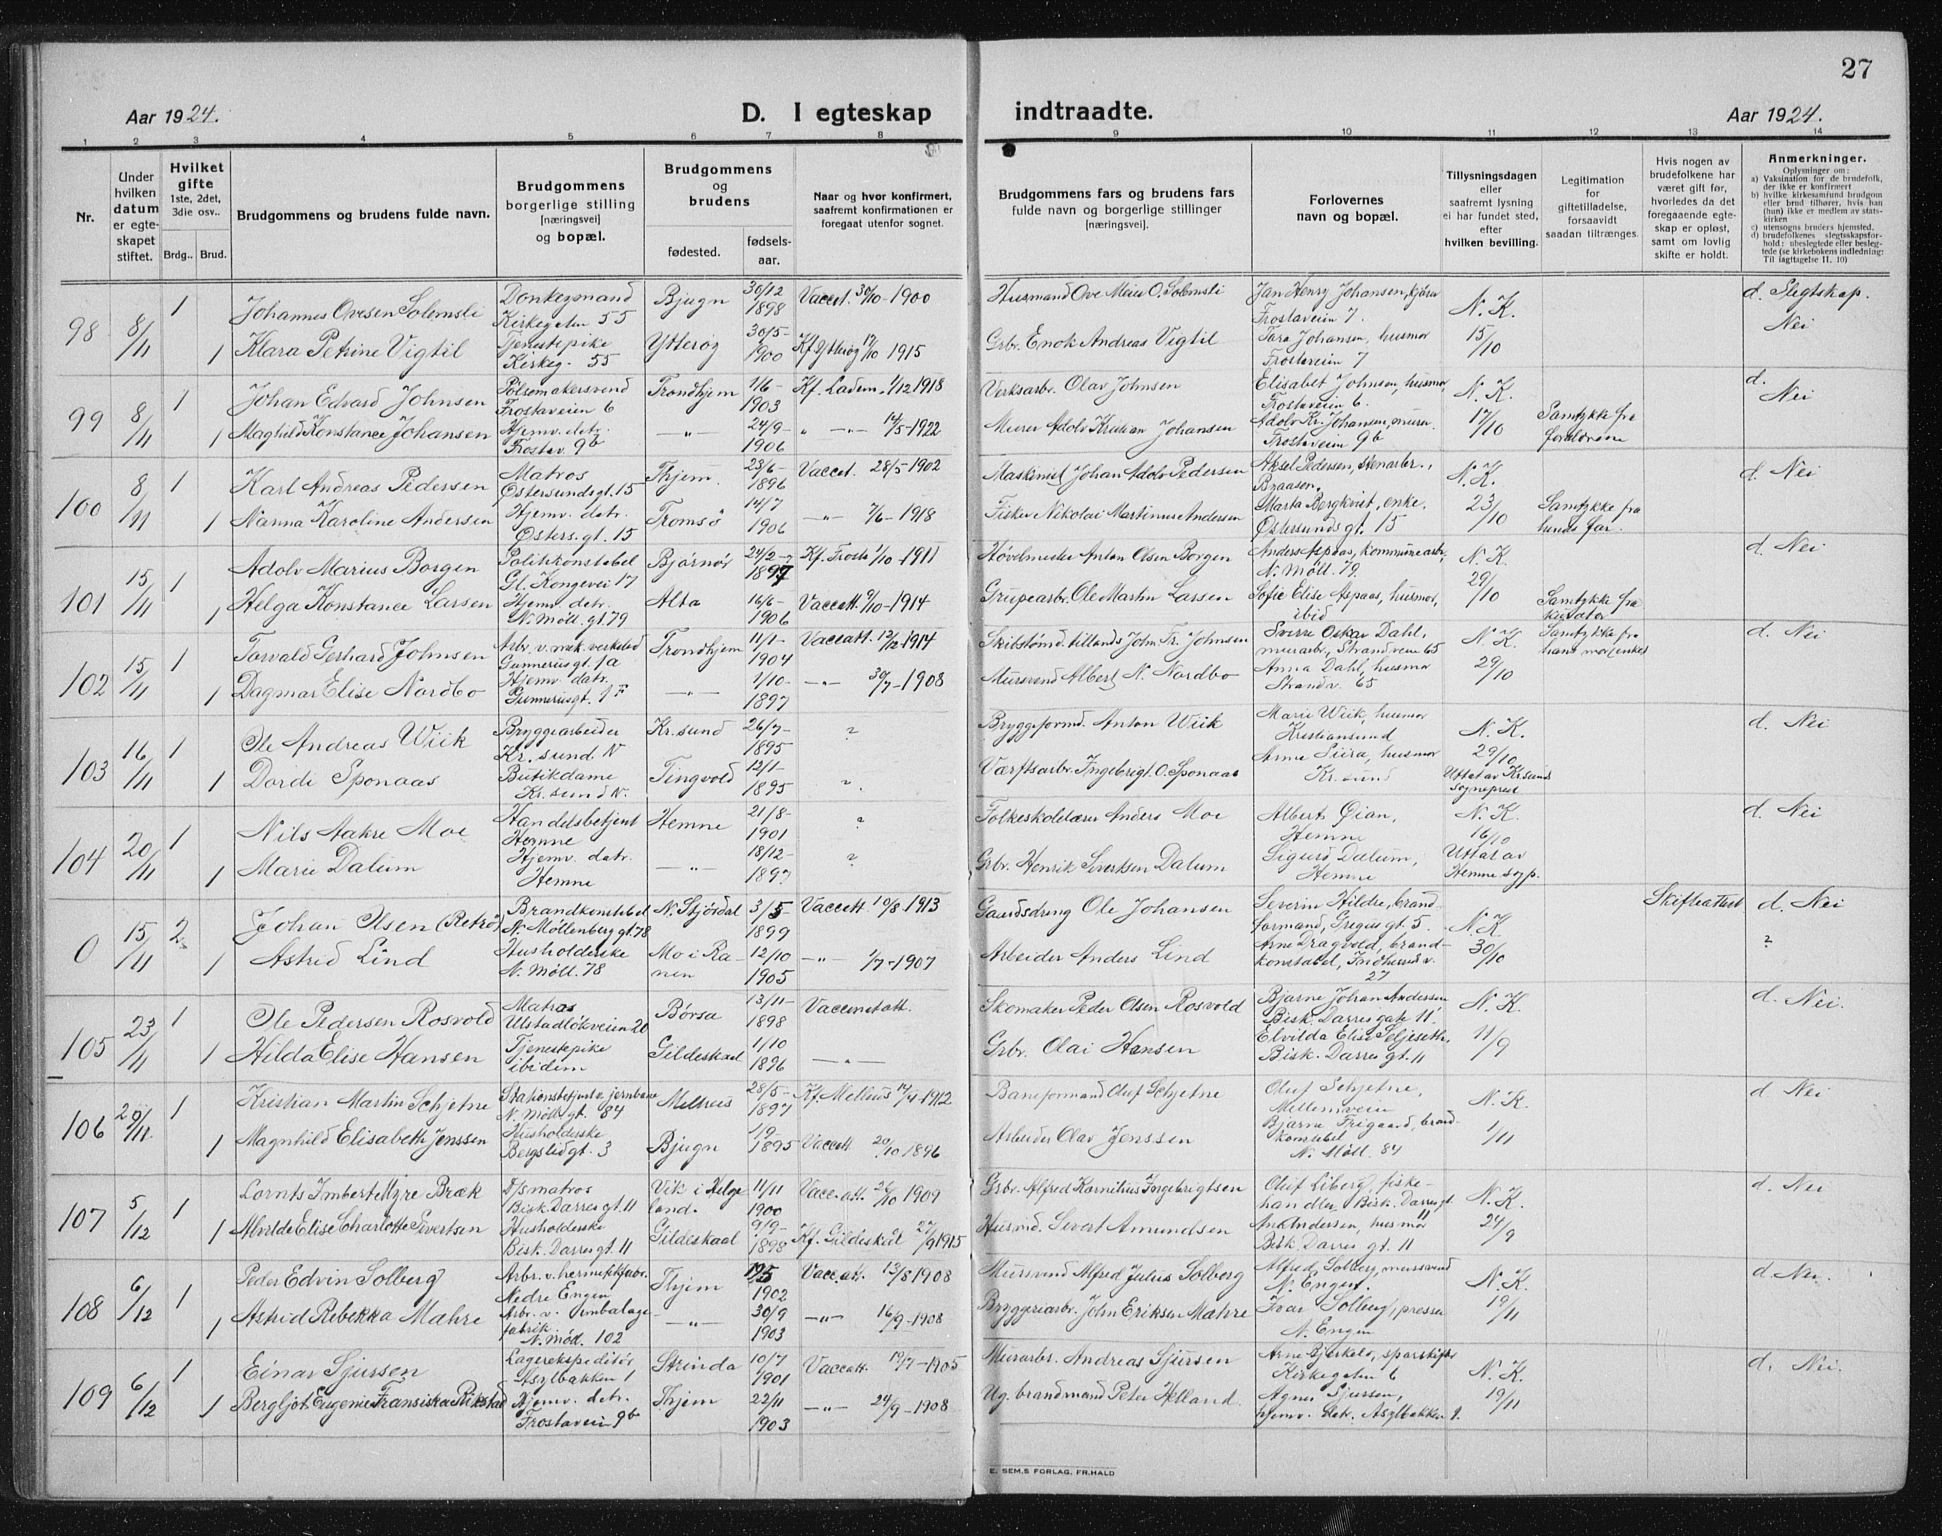 27
Aar 1924.
D. I egteskap
indtraadte.
Aar 1924.
1 2 3 4 5 6 7 8 9 10 11 12 13 14
Nr.
Under hvilken datum er egteskapet stiftet.
Hvilket gifte 1ste, 2det, 3die osv..
Brdg.. Brud.
Brudgommens og brudens fulde navn.
Brudgommens borgerlige stilling [næringsvei] og bopæl.
Brudgommens og brudens
fødested.
fødselsaar.
Naar og hvor konfirmert, saafremt konfirmationen er foregaat utenfor sognet.
Brudgommens fars og brudens fars fulde navn og borgerlige stillinger [næringsvei].
Forlovernes navn og bopæl.
Tillysningsdagen eller saafremt lysning ei har fundet sted, efter hvilken bevilling.
Legitimation for giftetilladelse, forsaavidt saadan tiltrænges.
Hvis nogen av brudefolkene har været gift før, hvorledes da det foregaaende egteskap er opløst, samt om lovlig skifte er holdt.
Anmerkninger.
Oplysninger om:
a) Vaksination for de brudefolk, der ikke er konfirmert
b) hvilke kirkesamfund brudgom eller brud tilhører, hvis han (hun) ikke er medlem av statskirken
c) utensogns bruders hjemsted.
d) brudefolkenes slegtsskapsforhold: ubeslegtede eller beslegtede (se kirkebokens indledning: Til iagttagelse II. 10)
98 8/11 1 Johannes Ovesen Solemsli Donkeymand Kirkegaten 55 Bjugn 30/12 1898 Vaccat. 30/10-1900 Husmand Ove Meier O. Solemsli Jan Henry Johansen, Frostaveien 7. N. K. 15/10 d. Slegtskap. Nei
1 Klara Petrine Vigtil Tjenestepike Kirkeg. 55 Ytterøy 30/5-1900 Kf. Ytterøy 1915 Grbr. Enok Andreas Vigtil Tara Johansen, husmor Frostaveien 7
99 8/11 1 Johan Edvard Johnsen Pølsemakersvend Frostaveien 6 Trondhjem 1/6-1903 Kf. Ladem. 1/12 1918 Verksarb. Olav Johnsen Elisabet Johnsen, husmor, Frostaveien 6. N. K. 17/10 d. Nei
1 Maghild Konstance Johansen Hjemv. datr. Frostav. 9b —"— 24/9-1906 " —"— 14/5-1922 Murer Adolv Kristian Johansen Adolv Kr. Johansen, murer Frostaveien 9b Samtykke fra foreldrene
100 8/11 1 Karl Andreas Pedersen Matros Østersundsgt. 15 Thjem. 23/6-1896 Vaccat. 28/5-1902 Maskinist Johan Adolv Pedersen Aksel Pedersen, stenarbr., Braasen, N. K. 23/10 d. Nei
1 Nanna Karoline Andersen Hjemv. datr. Østers.gt. 15 Tromsø 14/7 1906 —"— 7/6-1918 Fisker Nikolai Martinus Andersen Marta Bergkvist, enke, Østersundsgt. 15 Samtykke fra hendes far.
101 15/11 1 Adolv Marius Borgen Politikonstabel Gl. Kongevei 17 Bjørnør 24/2-1897 Kf. Frosta 1/10-1911 Høvelmester Anton Olsen Borgen Anders Aspaas, kommunearb., N. Møll. 79. N. K. 29/10 d. Nei
1 Helga Konstance Larsen Hjemv. datr. N. Møll. gt. 79 Alta 16/6-1906 Vaccatt. 9/10-1914 Grupearbr. Ole Martin Larsen Sofie Elise Aspaas, husmor, ibid Samtykke fra kurator
102 15/11 1 Torvald Gerhard Johnsen Arb. v. mek. verksted Gunnerusgt. 1a Trondhjem 11/1-1904 Vaccatt. 13/12 1914 Skibstømd. tillands John Fr. Johnsen Sverre Oskar Dahl, murarbr., Strandveien 65 N. K. 29/10 Samtykke fra hans mor (enke) d. Nei
1 Dagmar Elise Nordbo Hjemv. datr. Gunnerusgt. 1F —"— 1/10-1897 —"— 30/7-1908 Mursvend Albert N. Nordbo Anna Dahl, husmor Strandv. 65
103 16/11 1 Ole Andreas Wiik Bryggearbeider Kr.sund N Kr.sund 26/7-1895 ? Bryggeformd. Anton Wiik Marie Wiik, husmor Kristiansund N. K. 29/10 d. Nei
1 Dordi Sponaas Butikdame Kr.sund N. Tingvold 12/1-1895 ? Værftsarbr. Ingebrigt O. Sponaas Anne Siira, husmor Kr.sund Uttat av Kr.sund Sogneprest
104 20/11 1 Nils Aakre Moe Handelsbetjent Hemne Hemne 21/8-1901 ? Folkeskolelærer Anders Moe Albert Øian, Hemne N. K. 16/10 d. Nei
1 Marie Dalum Hjemv. datr. Hemne —"— 18/12-1897 ? Grbr. Henrik Sivertsen Dalum Sigurd Dalum, Hemne Uttat av Hemne sogp.
0 15/11 2 Johan Olsen (Retrø) Brandkonstabel N. Møllenberggt. 78 N. Stjørdal 3/5-1899 Vaccatt 10/8-1913 Gaardsdreng Ole Johansen Severin Hildre, brandformand, Gregusgt. 5. N. K 30/10 Skifteattest d. Nei
1 Astrid Lind Husholderske N. Møll. 78 Mo i Ranen 12/10 1905 —"— 1/7-1907 Arbeider Anders Lind Arne Dragvold, brandkonstabel, Indherredsv. 27 ?
105 23/11 1 Ole Pedersen Rosvold Matros Ulstadløkveien 20 Børsa 13/11-1898 Vaccinatatt. Skomaker Peder Olsen Rosvold Bjarne Johan Andersen Bisk. Darres gate 11. N. K. 11/9 d. Nei
1 Hilda Elise Hansen Tjenestepike ibidem Gildeskaal 1/10 1896 —"— Grbr. Olai Hansen Elvilda Elise Seljeseth, Bisk. Darresgt. 11
106 20/11. 1 Kristian Martin Schjetne Stationsbetjent v. jernbane N. Møll gt. 84 Melhus 28/5-1897 Kf. Melhus 1912 Baneformand Oluf Schjetne Oluf Schjetne, Mellemveien N. K. 1/11 d Nei
1 Magnhild Elisabeth Jenssen Husholderske Bergslidgt. 3 Bjugn 1/9-1895 Vaccatt 20/10 1896 Arbeider Olav Jenssen Bjarne Frigaard, brandkonstabel N. Møll. 84
107 5/12 1 Lornts Imbert Myre Bræk D/s matros Bisk. Darres gt. 11 Vik i Helgeland. 11/11 1900 Vacc. att. 26/10 1909 Grbr. Alfred Kornilius Ingebrigtsen Oluf Liberg, fiskehandler, Bisk. Darresgt. 11 N. K. 24/9 d. Nei
1 Alvilde Elise Charlotte Sivertsen Husholderske Bisk. Darresgt. 11 Gildeskaal 9/9-1898 Kf. Gildeskål 27/9 1915 Husvid. Sivert Amundsen An. Andersen, husmor Bisk. Darres gt. 11
108 6/12 1 Peder Edvin Solberg Arbr. v. hermetikfabr. Nedre Engen Thjem 19/5 1902 Vacc. att. 13/8 1908 Mursvend Alfred Julius Solberg Alfred Solberg, mursvend N. Engen. N. K. 19/11 d Nei.
1 Astrid Rebekka Mæhre Arbr. v. Embalagefabrik. N. Mød. 102 —"— 30/9 1903 —"— 16/9-1908 Bryggeriarbr. John Eriksen Mæhre Ivar Solberg, presser N. Engen
109 6/12 1 Einar Sjursen Lagerekspeditør Asylbakken 1 Strinda 10/7 1901 Vaccatt. 19/7-1905 Murarbr. Andreas Sjursen Arne Bjerkelo, sparskifer Kirkegaten 6 N. K. 19/11 d. Nei.
1 Bergljot Eugenie Fransiska Rikstad Hjemv. datr. Frostaveien 9b Thjem 22/11 1903 —"— 24/9-1908 Ug. brandmand Peter Helland. Agnes Sjursen, hjemv. datr. Asylbakken 1.
E. SEM,S FORLAG, FR.HALD